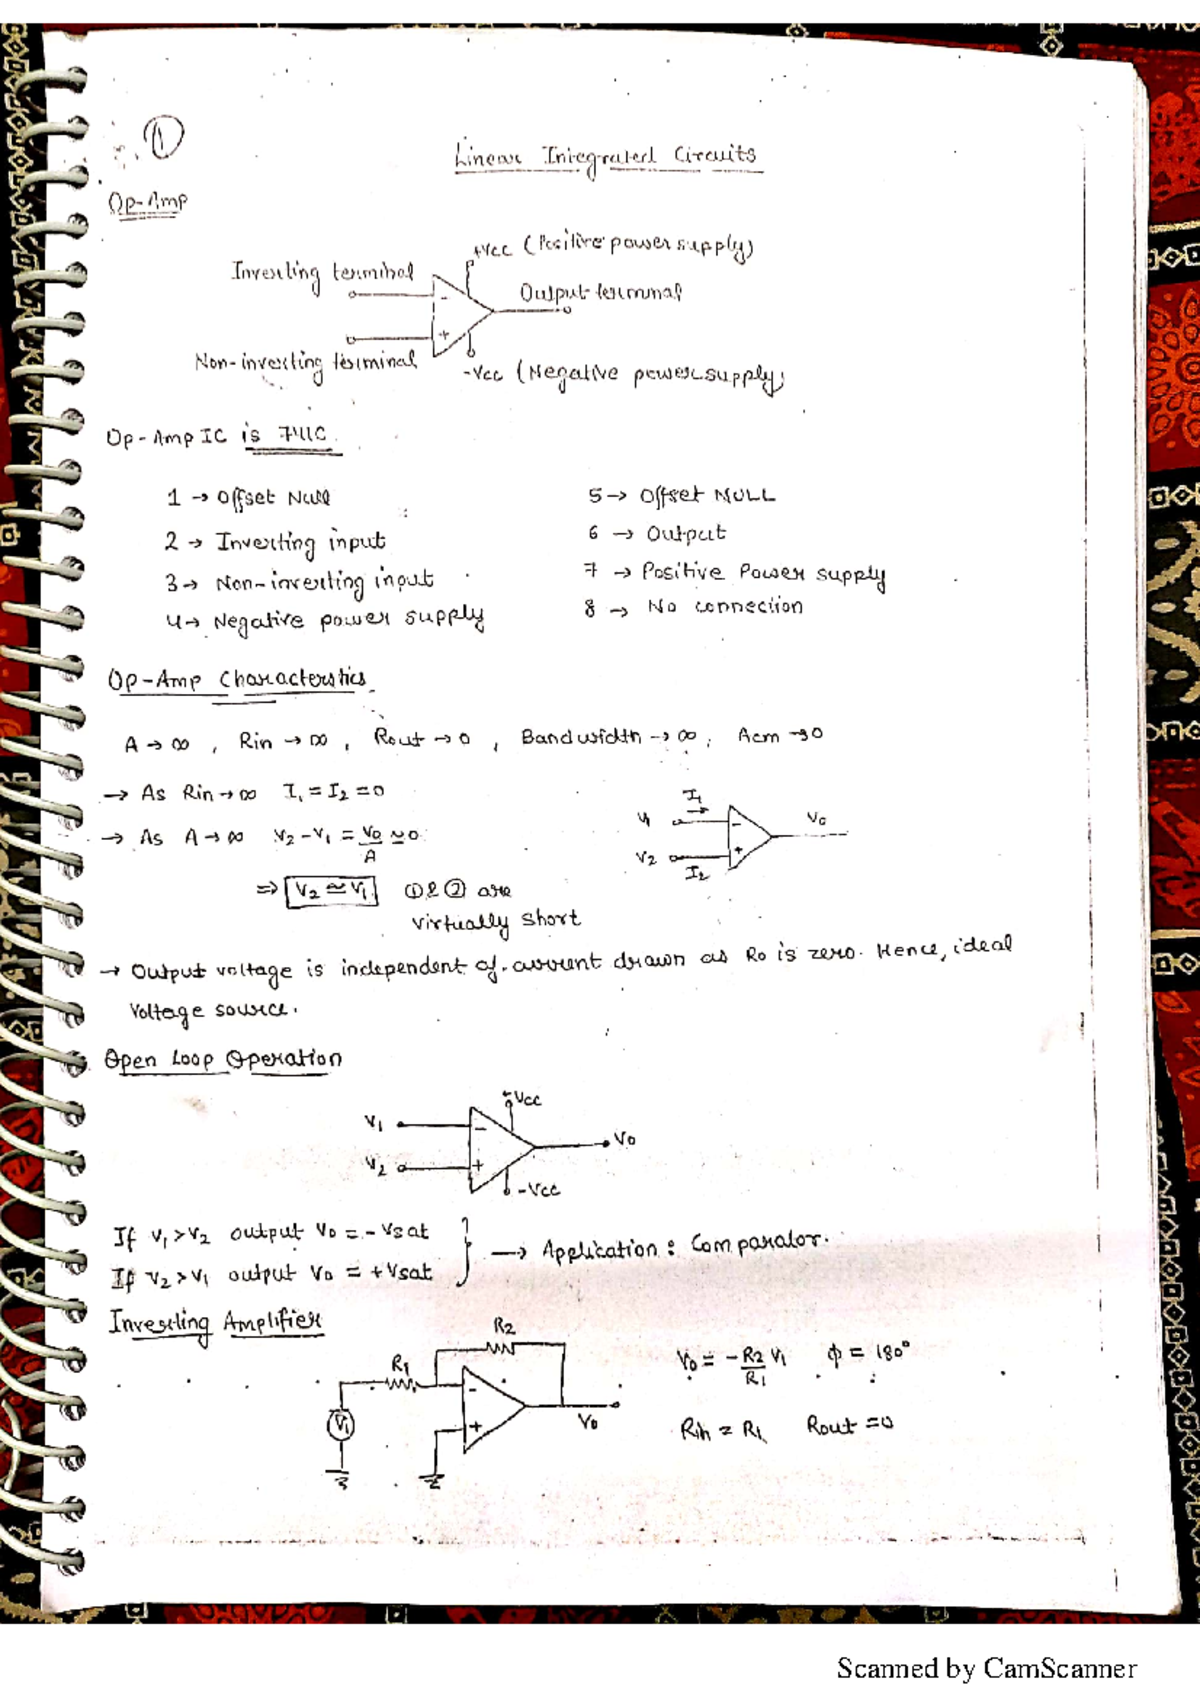 1
Linear Integrated Circuits
Op-Amp
+Vcc (Positive power supply)
Inverting terminal
Output terminal
- +
Non-inverting terminal
-Vcc (Negative power supply)
Op-Amp IC is 741C.
1 → Offset Null
2 → Inverting input
3 → Non-inverting input
4 → Negative power supply
5 → Offset NULL
6 → Output
7 → Positive Power supply
8 → No connection
Op-Amp Characterstics
A → ∞ , Rin → ∞ , Rout → 0 , Bandwidth → ∞ , Acm → 0
→ As Rin → ∞ I1 = I2 = 0
→ As A → ∞ V2 - V1 = V0/A ≃ 0
⇒ V2 ≃ V1 ① & ② are
virtually short
I1
V1 - V0
V2 +
I2
→ Output voltage is independent of current drawn as Ro is zero. Hence, ideal
Voltage source.
Open Loop Operation
+Vcc
V1 - V0
V2 +
-Vcc
If V1 > V2 output V0 = -Vsat
If V2 > V1 output V0 = +Vsat
→ Application : Comparator.
Inverting Amplifier
R2
R1
-
V1 + V0
V0 = -R2/R1 V1 φ = 180°
Rin = R1 Rout = 0
Scanned by CamScanner